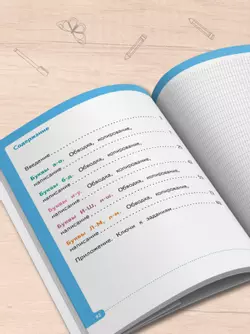 Содержание
Введение
Буквы а-о. Обводка, копирование,
написание
Буквы б-д. Обводка, копирование,
написание
Обводка, копирование,
написание
Буквы И-Ш, Обводка, копирование,
написание
Буквы Л-М, Обводка, копирование,
написание
Приложение. Ключи к заданиям